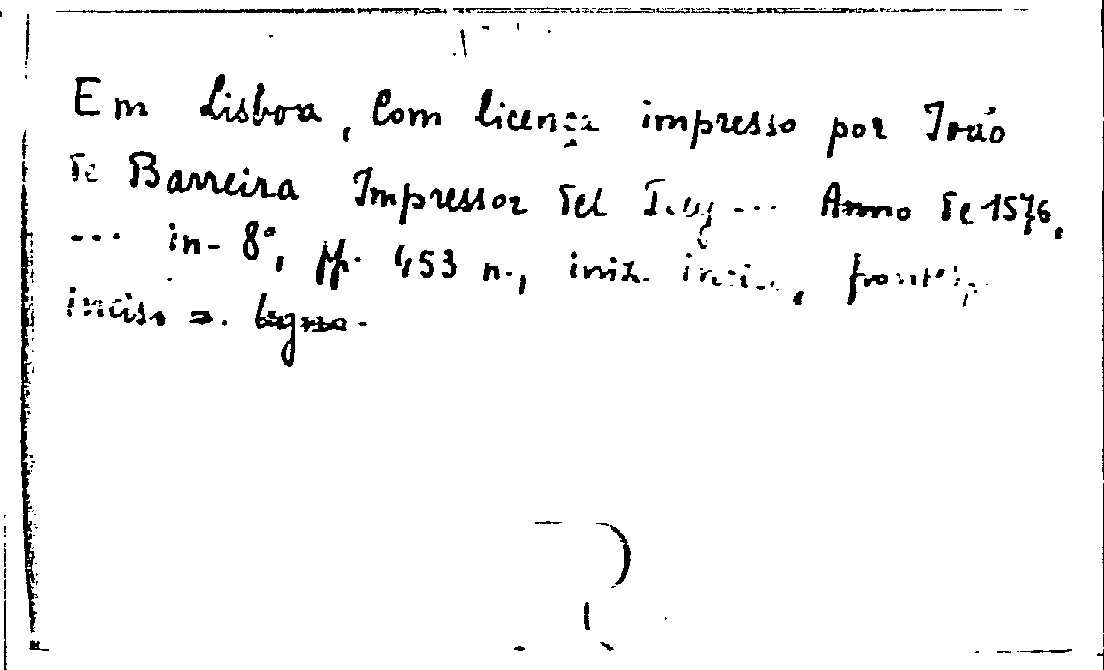 Em Lisboa, Com licença impresso por João
de Barreira Impressor del Rey ... Anno de 1576,
... in-8°, pp. 453 n., iniz. incise, frontesp.
inciso in legno.